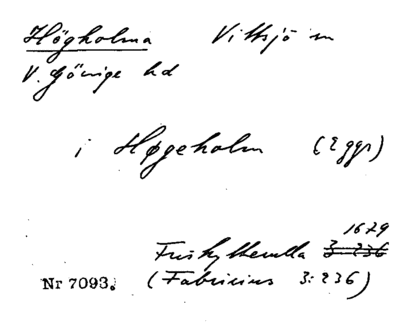 Högholma Vittsjö sn
V. Göinge hd
i Høgeholm (2 ggr)
1679
Friskytterulla 3:236
Nr 7093. (Fabricius 3:236)